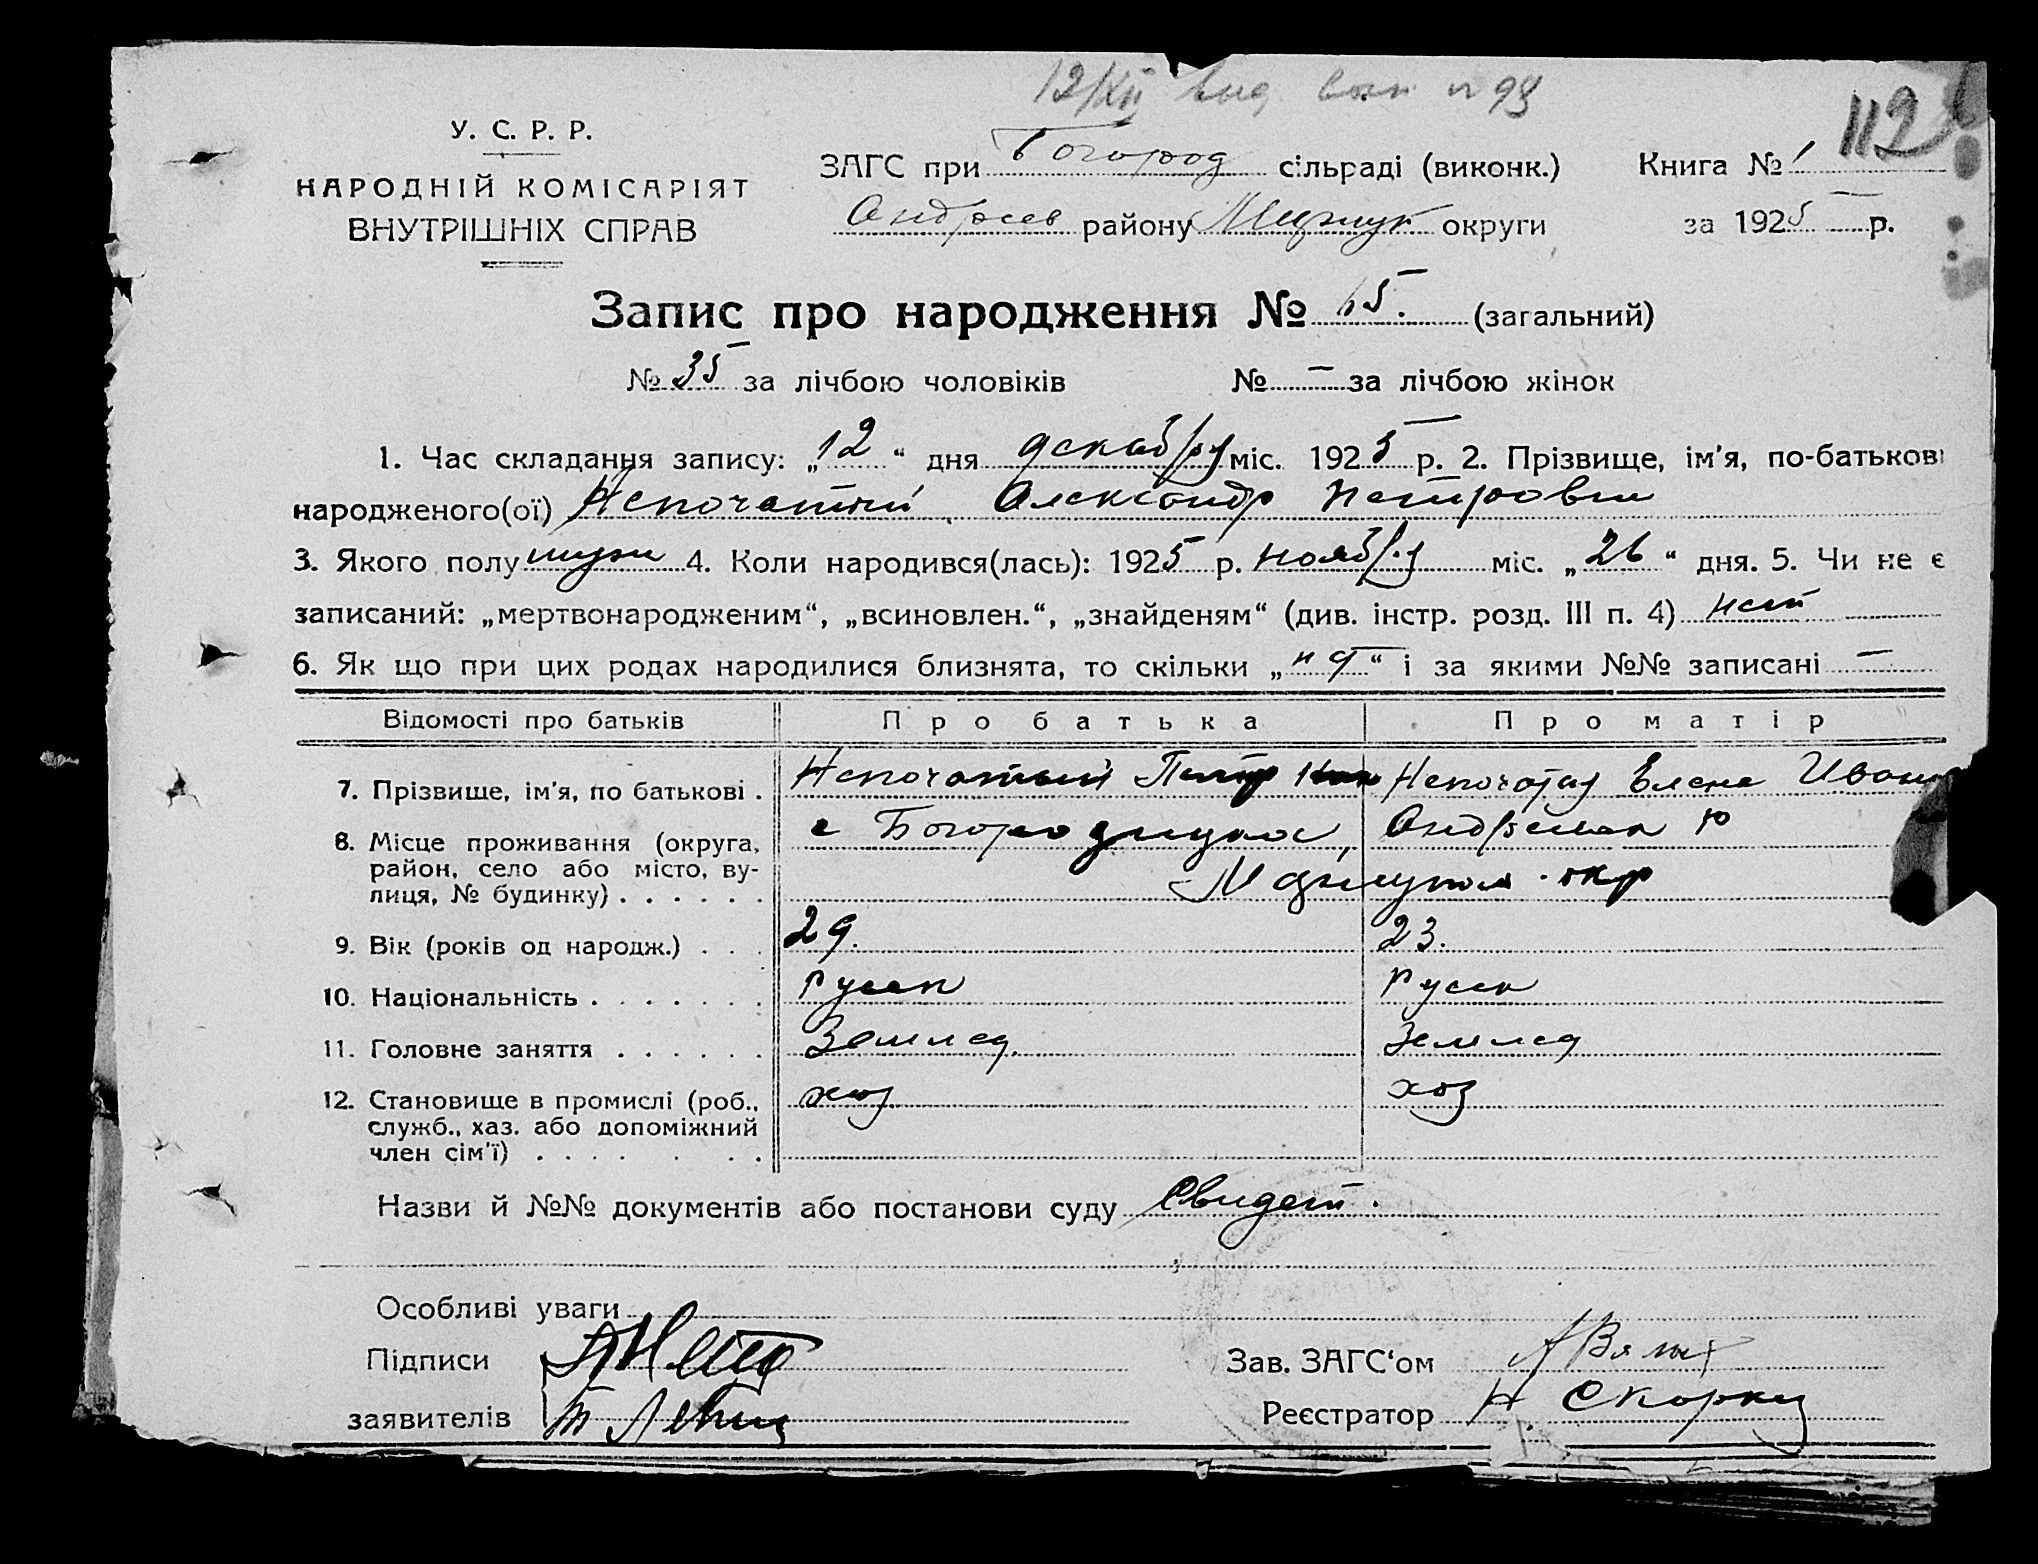 12/XII вид
112
У. С. Р. Р.
НАРОДНІЙ КОМІСАРІЯТ
ВНУТРІШНІХ СПРАВ
ЗАГС при Богород сільраді (виконк.) Книга № 1
Андреев району округи за 1925 р.
Запис про народження № 65. (загальний)
№ 35 за лічбою чоловіків № — за лічбою жінок
1. Час складання запису: „12“ дня декабря міс. 1925 р. 2. Прізвище, ім'я, по-батькові
народженого(ої) Непочатый Александр Петрович
3. Якого полу муж 4. Коли народився(лась): 1925 р. ноября міс. „26“ дня. 5. Чи не є
записаний: „мертвонародженим“, „всиновлен.“, „знайденям“ (див. інстр. розд. III п. 4) нет
6. Як що при цих родах народилися близнята, то скільки „ “ і за якими №№ записані —
Відомості про батьків Про батька Про матір
7. Прізвище, ім'я, по батькові . Непочатый Петр Непочатая Елена Иван
8. Місце проживання (округа, район, село або місто, вулиця, № будинку) . . . . . . с Богородицкое, окр
9. Вік (років од народж.) . . . 29. 23.
10. Національність . . . . . . . русск русск
11. Головне заняття . . . . . . Землед. Землед
12. Становище в промислі (роб., служб., хаз. або допоміжний член сім'ї) . . . . . . . хоз хоз
Назви й №№ документів або постанови суду Свидет.
Особливі уваги
Підписи Зав. ЗАГС'ом
заявителів Реєстратор Н. Скорки